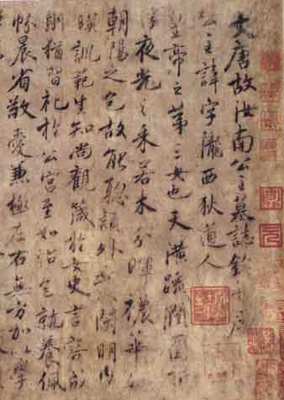 大唐故汝南公主墓誌銘并序
公主諱字隴西狄道人
皇帝之第三女也天潢疏潤圓折
浮夜光之采若木分暉穠華
朝陽之色故能聰穎外發閑明內
暎訓範生知尚觀箴於女史言容成
則猶習禮於公宮至如怡色就養佩
帉晨省敬愛兼極左右無方加以學